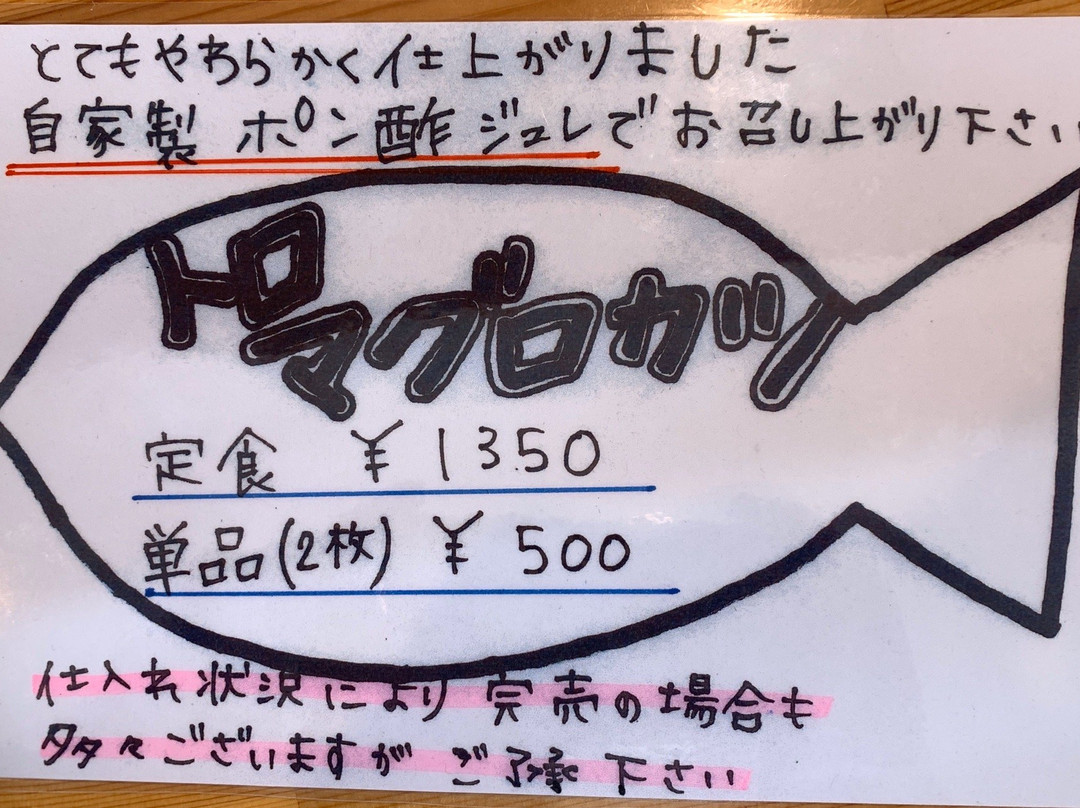 とてもやわらかく仕上がりました
自家製 ポン酢ジュレでお召し上がり下さい
トロ
マグロカツ
定食 ¥1350
単品(2枚) ¥500
仕入れ状況により完売の場合も
多々ございますがご了承下さい